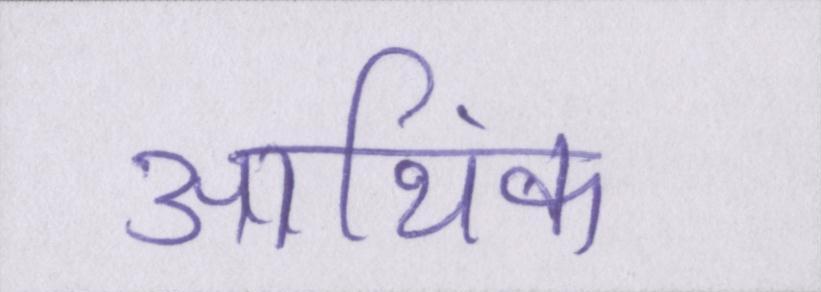 आथिंक